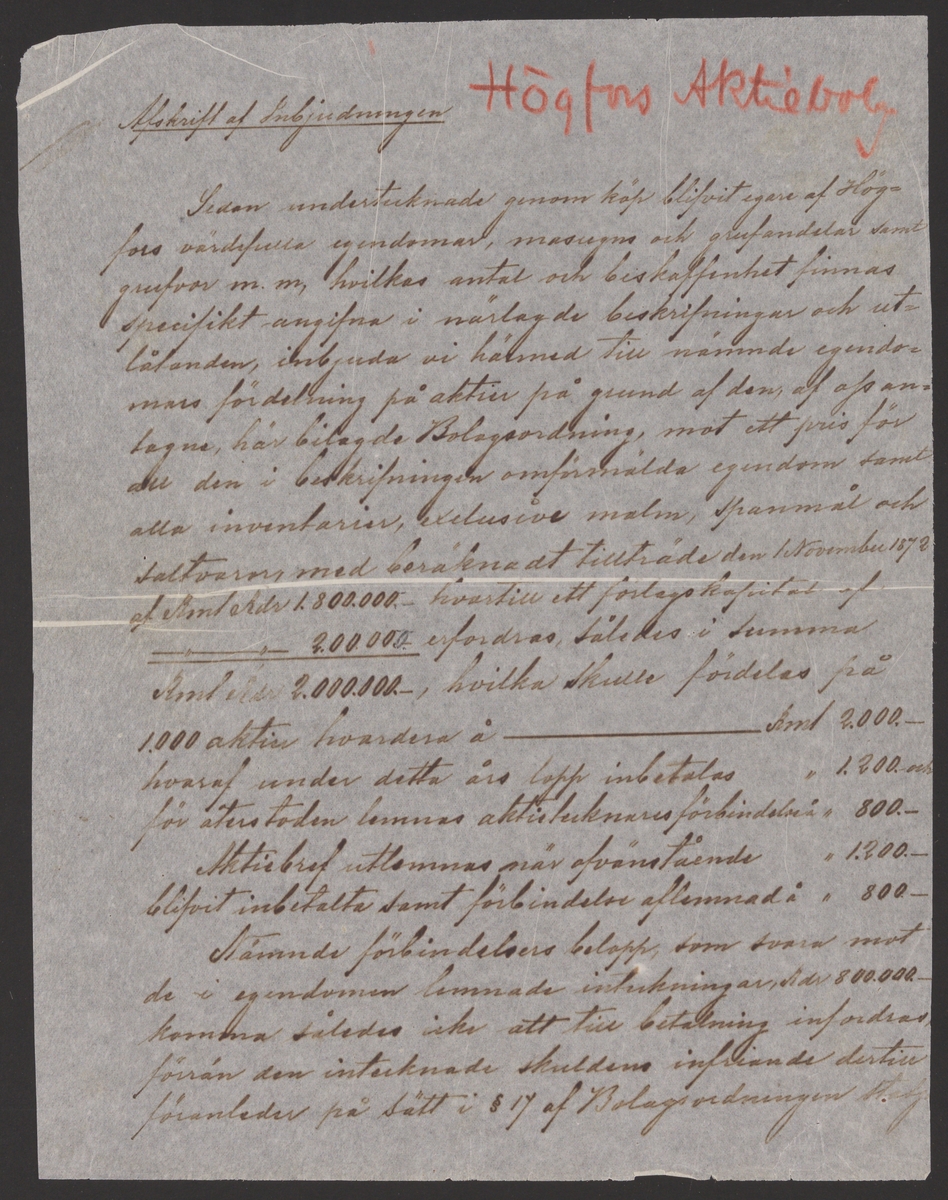 Högfors Aktiebolg
Afskrift af Inbjudningen
Sedan undertecknade genom köp blifvit egare af Hög=
fors värdefulla egendomar, masugns och grufandelar samt
grufvor m. m, hvilkas antal och beskaffenhet finnas
specifikt angifna i närlagde beskrifningar och ut=
låtanden, inbjuda vi härmed till nämnde egendo=
mars fördelning på aktier på grund af den, af oss an=
tagne, här bilagde Bolagsordning, mot ett pris för
all den i beskrifningen omförmälda egendom samt
alla inventarier, exclusive malm, spanmål och
saltvaror, med beräknadt tillträde den 1 November 1872
af Rmt Rdr 1.800.000.– hvartill ett förlagskapital af
„ „ 200.000.– erfordras, således i summa
Rmt Rdr 2.000.000.–, hvilka skulle fördelas på
1.000 aktier hvardera å Rmt 2.000.–
hvaraf under detta års lopp inbetalas „ 1.200.– och
för återstoden lemnas aktietecknares förbindelse å „ 800.–
Aktiebref utlemnas när ofvanstående „ 1.200.–
blifvit inbetalta samt förbindelse aflemnad å „ 800.–
Nämnde förbindelsers belopp, som svara mot
de i egendomen lemnade inteckningar, Rdr 800.000.–
komma således icke att till betalning infordras,
förrän den intecknade skuldens infriande dertill
föranleder på sätt i § 17 af Bolagsordningen